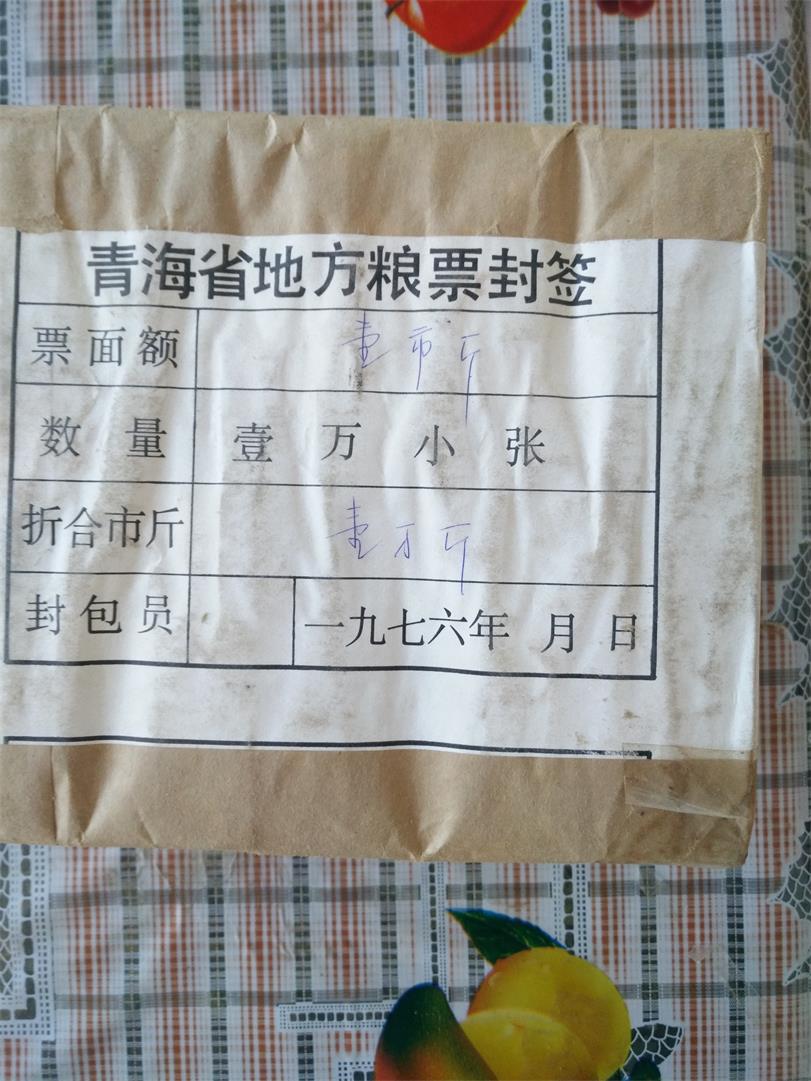 青海省地方粮票封签
票面额 壹市斤
数量 壹万小张
折合市斤 壹万斤
封包员 一九七六年 月 日